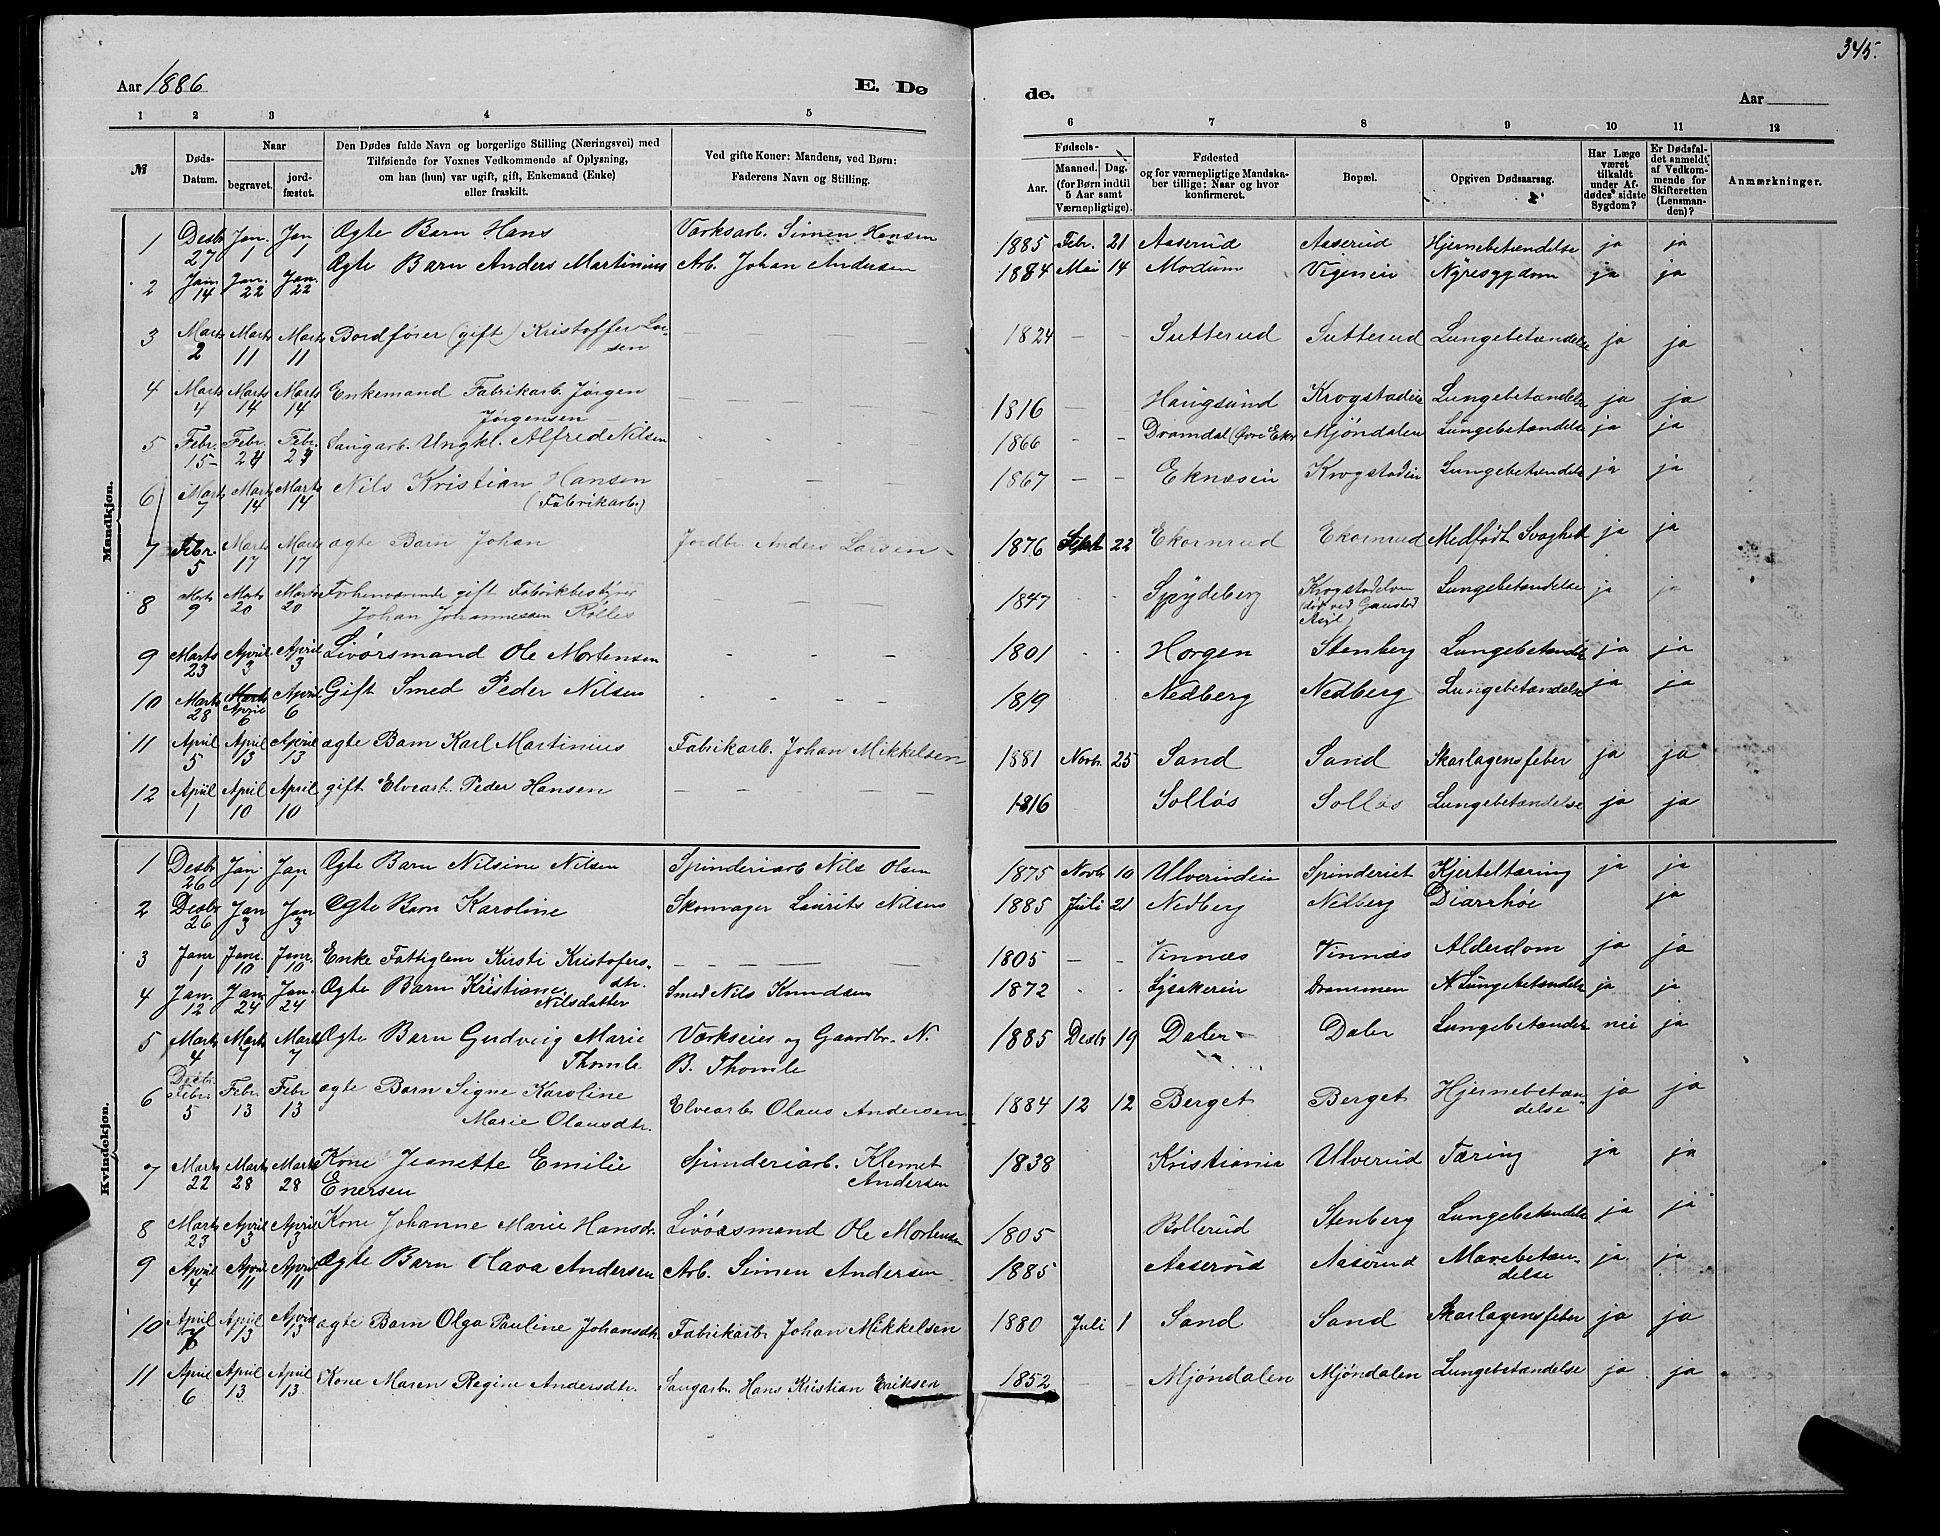 345.
Aar 1886 E. De de. Aar
1 2 3 4 5 6 7 8 9 10 11 12
№ Døds-Datum. Naar begravet. jordfæstet. Den Dødes fulde Navn og borgerlige Stilling (Næringsvei) med Tilføiende for Voxnes Vedkommende af Oplysning, om han (hun) var ugift, gift, Enkemand (Enke) eller fraskilt. Ved gifte Koner: Mandens, ved Børn: Faderens Navn og Stilling. Fødsels- Aar. Maaned. Dag. (for Børn indtil 5 Aar samt Værnepligtige). Fødested og for værnepligtige Mandskaber tillige: Naar og hvor konfirmeret. Bopæl. Opgiven Dødsaarsag. Har Læge været tilkaldt under Afdødes sidste Sygdom? Er Dødsfaldet anmeldt af Vedkommende for Skifteretten (Lensmanden)? Anmærkninger.
Mandkjøn.
1 Desbr 27 Jan. 1 Jan 1 Ægte Barn Hans Værksarb. Simen Hansen 1885 Febr. 21 Aaserud Aaserud Hjernebetændelse ja ja
2 Jan. 14 Jan. 22 Jan. 22 Ægte Barn Anders Martinius Arb. Johan Andersen 1884 Mai 14 Modum Vigeneie Nyresygdom ja ja
3 Marts 2 Marts 11 Marts 11 Bordfører (gift) Kristoffer Larsen — — — — 1824 — — Sutterud Sutterud Lungebetændelse ja ja
4 Marts 4 Marts 14 Marts 14 Enkemand Fabrikarb. Jørgen Jørgensen — — — — 1816 — Haugsund Krogstadeie Lungebetændelse ja ja
5 Febr. 15 Febr. 24 Febr. 24 Saugarb. Ungkl. Alfred Nilsen - - - - 1866 - - Dramdal (Øvre Eker Mjøndalen Lungebetændelse ja ja
6 Marts 7 Marts 14 Marts 14 Nils Kristian Hansen (Fabrikarb.) 1867 — — Eknæseie Krogstadeie Lungebetændelse ja ja
7 Febr. 5 Marts 17 Marts 17 ægte Barn Johan Jordbr. Anders Larsen 1876 Sept 22 Ekornrud Ekornrud Medfødt Svaghed ja ja
8 Marts 9 Marts 20 Marts 20 Forhenværende gift Fabrikbestyrer Johan Johannesen Rolles — — — — 1847 - - Spydeberg Krogstadelven (død ved Gaustad Asyl) Lungebetændelse ja ja
9 Marts 23 April 3 April 3 Livørsmand Ole Mortensen - - - - 1801 - - Horgen Stenberg Lungebetændelse ja ja
10 Marts 28 April 6 April 6 Gift Smed Peder Nilsen - - - - 1819 Nedberg Nedberg Lungebetændelse ja ja
11 April 5 April 13 April 13 ægte Barn Karl Martinius Fabrikarb. Johan Mikkelsen 1881 Novbr. 25 Sand Sand Skarlagensfeber ja ja
12 April 1 April 10 April 10 gift Elvearb. Peder Hansen — — — — 1816 Solløs Solløs Lungebetændelse ja ja
Kvindekjøn.
1 Desbr 26 Jan. 1 Jan 1 Ægte Barn Nilsine Nilsen Spinderiarb Nils Olsen 1875 Novbr 10 Ulverudeie Spinderiet Kjerteltæring ja ja
2 Desbr 26 Jan 3 Jan 3 Ægte Barn Karoline Skomager Laurits Nilsen 1885 Juli 21 Nedberg Nedberg Diarrhøe ja
3 Janr 1 Janr. 10 Janr. 10 Enke Fattiglem Kirsti Kristofersdtr. — — — — — 1805 — — Vinnæs Vinnæs Alderdom ja ja
4 Jan. 12 Jan. 24 Jan. 24 Ægte Barn Kristiane Nilsdatter Smed Nils Knudsen 1872 - - Lysakereie Drammen A. Lungebetændelse ja ja
5 Marts 4 Marts 7 Marts 7 Ægte Barn Gudveig Marie Thomle Værkseier og Gaardbr. N. B. Thomle 1885 Desbr 19 Daler Daler Lungebetændelse nei ja
6 Desbr. Febr. 5 Febr. 13 Febr 13 ægte Barn Signe Karoline Marie Olausdtr. Elvearb Olaus Andersen 1884 12 12 Berget Berget Hjernebetændelse ja ja
7 Marts 22 Marts 28 Marts 28 Kone Jeanette Emilie Enersen Spinderiarb. Klemet Andersen 1838 Kristiania Ulverud Tæring ja ja
8 Marts 23 April 3 April 3 Kone Johanne Marie Hansdr. Livørsmand Ole Mortensen 1805 Bollerud Stenberg Lungebetændelse ja ja
9 April 4 April 11 April 11 Ægte Barn Olava Andersen Arb. Simen Andersen 1885 Aaserud Aaserud Mavebetændelse ja ja
10 April 7 April 13 April 13 ægte Barn Olga Pauline Johansdtr Fabrikarb Johan Mikkelsen 1880 Juli 1 Sand Sand Skarlagensfeber ja ja
11 April 6 April 13 April 13 Kone Maren Regine Andersdtr. Saugarb. Hans Kristian Eriksen 1852 — — Mjøndalen Mjøndalen Lungebetændelse ja ja